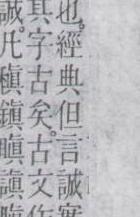 也。經典但言誠實
其字古矣。古文作
誠。凡稹鎭瞋謓